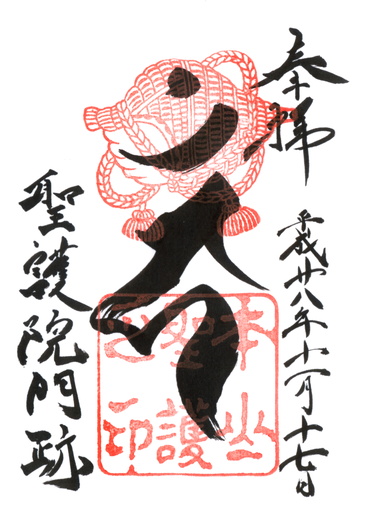 奉拝
平成廿八年十一月十七日
聖護院門跡
本山
聖護
之印